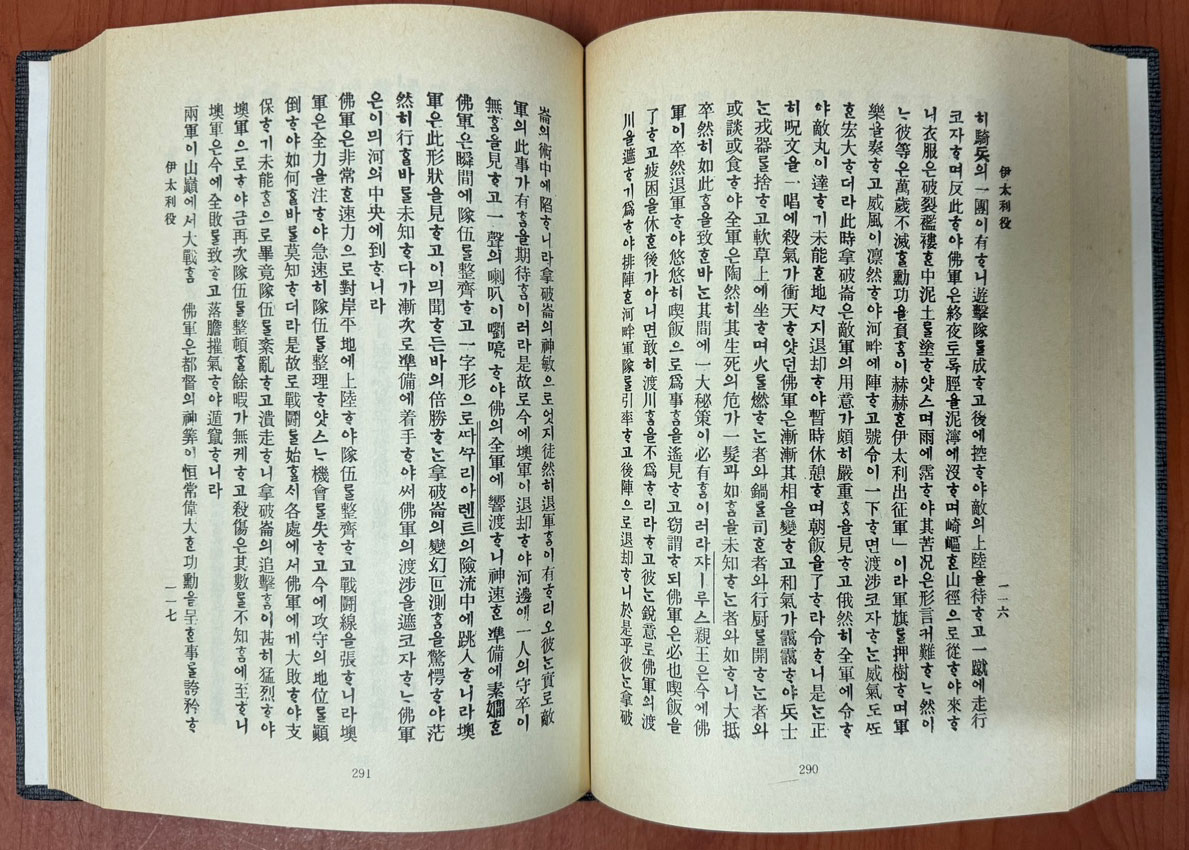 伊太利役
一一六
히騎兵의一團이有ᄒᆞ니遊擊隊를成ᄒᆞ고後에控ᄒᆞ야敵의上陸을待ᄒᆞ고一蹴에走行
코자ᄒᆞ며反此ᄒᆞ야佛軍은終夜토록脛을泥濘에沒ᄒᆞ며崎嶇ᄒᆞᆫ山徑으로從ᄒᆞ야來ᄒᆞ
니衣服은破裂襤褸ᄒᆞᆫ中泥土를塗ᄒᆞ얏스며雨에霑ᄒᆞ야其苦况은形言키難ᄒᆞᄂᆞ然이
ᄂᆞ彼等은萬歲不滅ᄒᆞᆯ勳功을負ᄒᆞᆷ이赫赫ᄒᆞᆫ伊太利出征軍」이라軍旗를押樹ᄒᆞ며軍
樂을奏ᄒᆞ고威風이凛然ᄒᆞ야河畔에陣ᄒᆞ고號令이一下ᄒᆞ면渡涉코자ᄒᆞᄂᆞᆫ威氣도ᄯᅩ
ᄒᆞᆫ宏大ᄒᆞ더라此時拿破崙은敵軍의用意가頗히嚴重ᄒᆞᆷ을見ᄒᆞ고俄然히全軍에令ᄒᆞ
야敵丸이達ᄒᆞ기未能ᄒᆞᆫ地ᄭᆞ지退却ᄒᆞ야暫時休憩ᄒᆞ며朝飯을了ᄒᆞ라令ᄒᆞ니是ᄂᆞᆫ正
히呪文을一唱에殺氣가衝天ᄒᆞ얏던佛軍은漸漸其相을變ᄒᆞ고和氣가靄靄ᄒᆞ야兵士
ᄂᆞᆫ戎器를捨ᄒᆞ고軟草上에坐ᄒᆞ며火를燃ᄒᆞᄂᆞᆫ者와鍋를司ᄒᆞᆫ者와行厨를開ᄒᆞᄂᆞᆫ者와
或談或食ᄒᆞ야全軍은陶然히其生死의危가一髮과如ᄒᆞᆷ을未知ᄒᆞᄂᆞᆫ者와如ᄒᆞ니大抵
卒然히如此ᄒᆞᆷ을致ᄒᆞᆫ바ᄂᆞᆫ其間에一大秘策이必有ᄒᆞᆷ이러라쟈ー루스親王은今에佛
軍이卒然退軍ᄒᆞ야悠悠히喫飯으로爲事ᄒᆞᆷ을遙見ᄒᆞ고窃謂ᄒᆞ되佛軍은必也喫飯을
了ᄒᆞ고疲困을休ᄒᆞᆫ後가아니면敢히渡川ᄒᆞᆷ을不爲ᄒᆞ리라ᄒᆞ고彼ᄂᆞᆫ銳意로佛軍의渡
川을遮ᄒᆞ기爲ᄒᆞ야排陣ᄒᆞᆫ河畔軍隊를引率ᄒᆞ고後陣으로退却ᄒᆞ니於是乎彼ᄂᆞᆫ拿破
290
崙의術中에陷ᄒᆞ니라拿破崙의神敏으로엇지徒然히退軍ᄒᆞᆷ이有ᄒᆞ리오彼ᄂᆞᆫ實로敵
軍의此事가有ᄒᆞᆷ을期待ᄒᆞᆷ이러라是故로今에墺軍이退却ᄒᆞ야河邊에一人의守卒이
無ᄒᆞᆷ을見ᄒᆞ고一聲의喇叭이嚠喨ᄒᆞ야佛의全軍에響渡ᄒᆞ니神速ᄒᆞᆫ準備에素嫺ᄒᆞᆫ
佛軍은瞬間에隊伍를整齊ᄒᆞ고一字形으로ᄯᅡ쑤리아렌트의險流中에跳入ᄒᆞ니라墺
軍은此形狀을見ᄒᆞ고이믜聞ᄒᆞ든바의倍勝ᄒᆞᄂᆞᆫ拿破崙의變幻叵測ᄒᆞᆷ을驚愕ᄒᆞ야茫
然히行ᄒᆞᆯ바를未知ᄒᆞ다가漸次로準備에着手ᄒᆞ야써佛軍의渡涉을遮코자ᄒᆞᄂᆞ佛軍
은이믜河의中央에到ᄒᆞ니라
佛軍은非常ᄒᆞᆫ速力으로對岸平地에上陸ᄒᆞ야隊伍를整齊ᄒᆞ고戰鬪線을張ᄒᆞ니라墺
軍은全力을注ᄒᆞ야急速히隊伍를整理ᄒᆞ얏스ᄂᆞ機會를失ᄒᆞ고今에攻守의地位를顚
倒ᄒᆞ야如何ᄒᆞᆯ바를莫知ᄒᆞ더라是故로戰鬪를始ᄒᆞᆯᄉᆡ各處에서佛軍에게大敗ᄒᆞ야支
保ᄒᆞ기未能ᄒᆞᆷ으로畢竟隊伍를紊亂ᄒᆞ고潰走ᄒᆞ니拿破崙의追擊ᄒᆞᆷ이甚히猛烈ᄒᆞ야
墺軍으로ᄒᆞ야금再次隊伍를整頓ᄒᆞᆯ餘暇가無케ᄒᆞ고殺傷은其數를不知ᄒᆞᆷ에至ᄒᆞ니
墺軍은今에全敗를致ᄒᆞ고落膽摧氣ᄒᆞ야遁竄ᄒᆞ니라
兩軍이山巓에서大戰ᄒᆞᆷ 佛軍은都督의神筭이恒常偉大ᄒᆞᆫ功勳을呈ᄒᆞᆫ事를誇矜ᄒᆞ
伊太利役
一一七
291